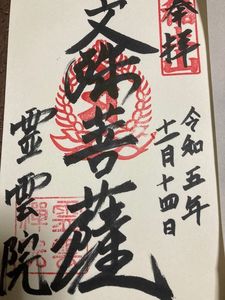 奉拝
令和五年
十一月十四日
文殊菩薩
霊雲院